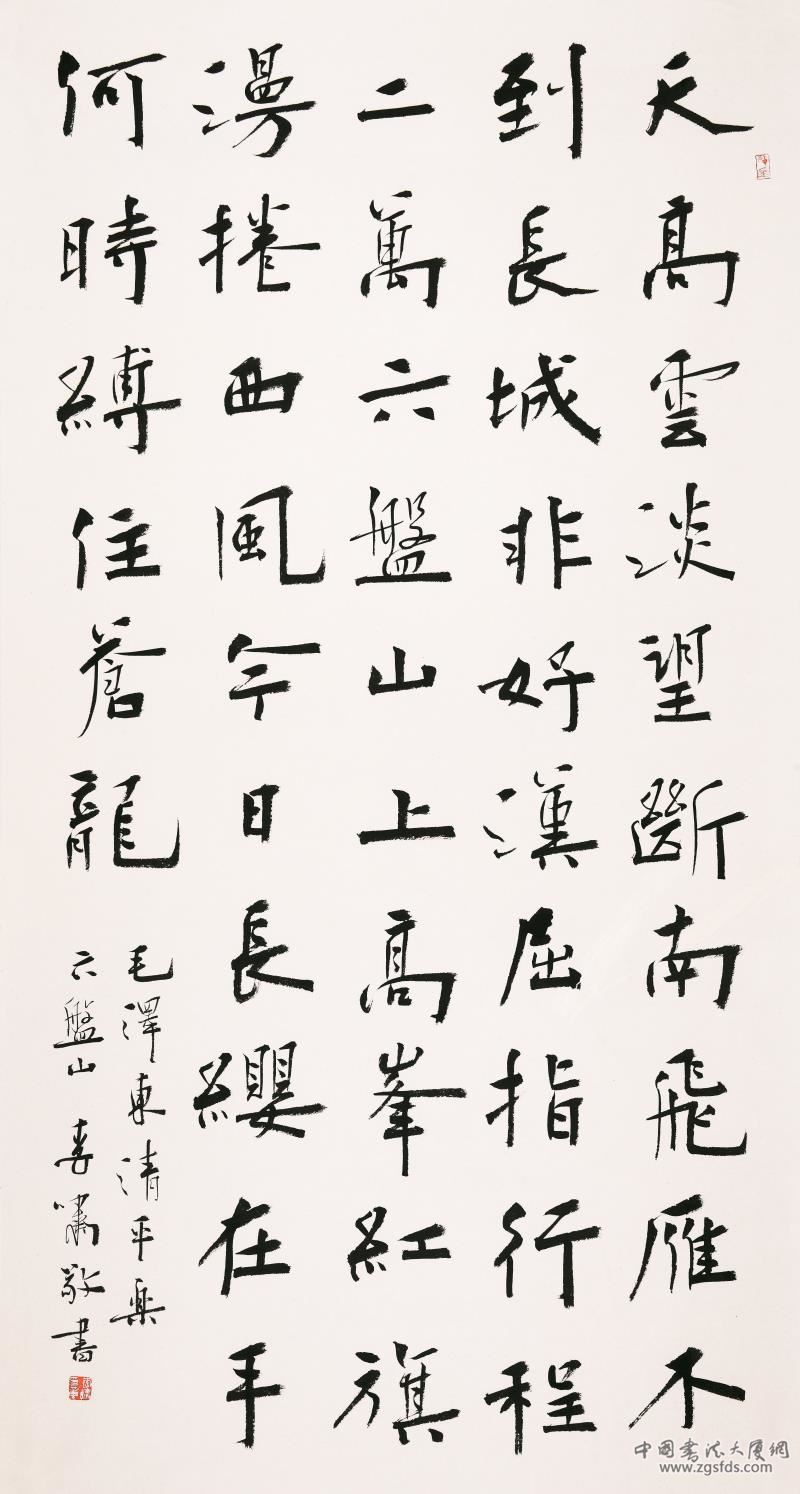 天高雲淡望斷南飛雁不
到長城非好漢屈指行程
二萬六盤山上高峯紅旗
漫捲西風今日長纓在手
何時縛住蒼龍
毛澤東清平樂
六盤山 李嘯敬書
中國書法大厦網
www.zgsfds.com